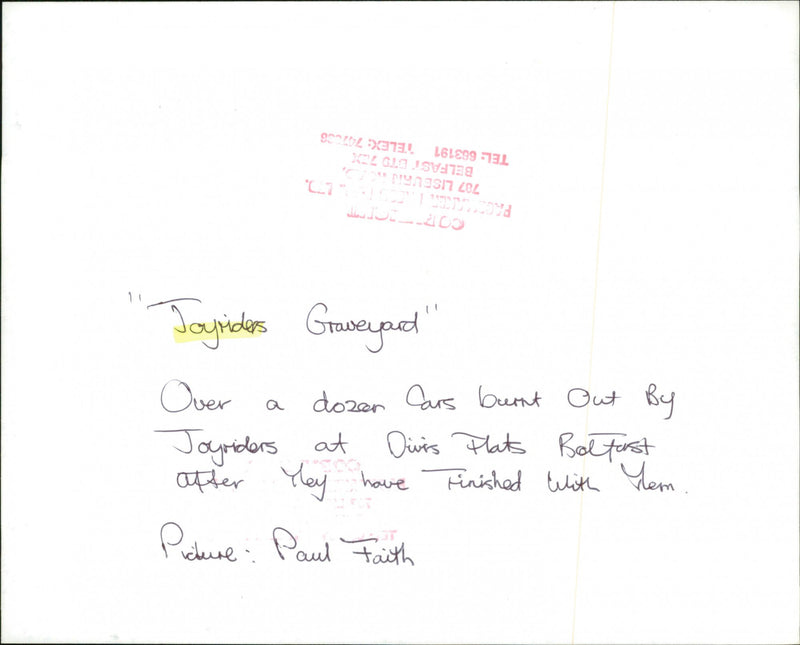 COPYRIGHT
PACEMAKER PRESS LTD.
707 LISBURN ROAD,
BELFAST BT9 7EX
TEL: 663191 TELEX:
"Joyriders Graveyard"
Over a dozen Cars burnt Out By
Joyriders at Divis Flats Belfast
After They have Finished With Them.
Picture: Paul Faith